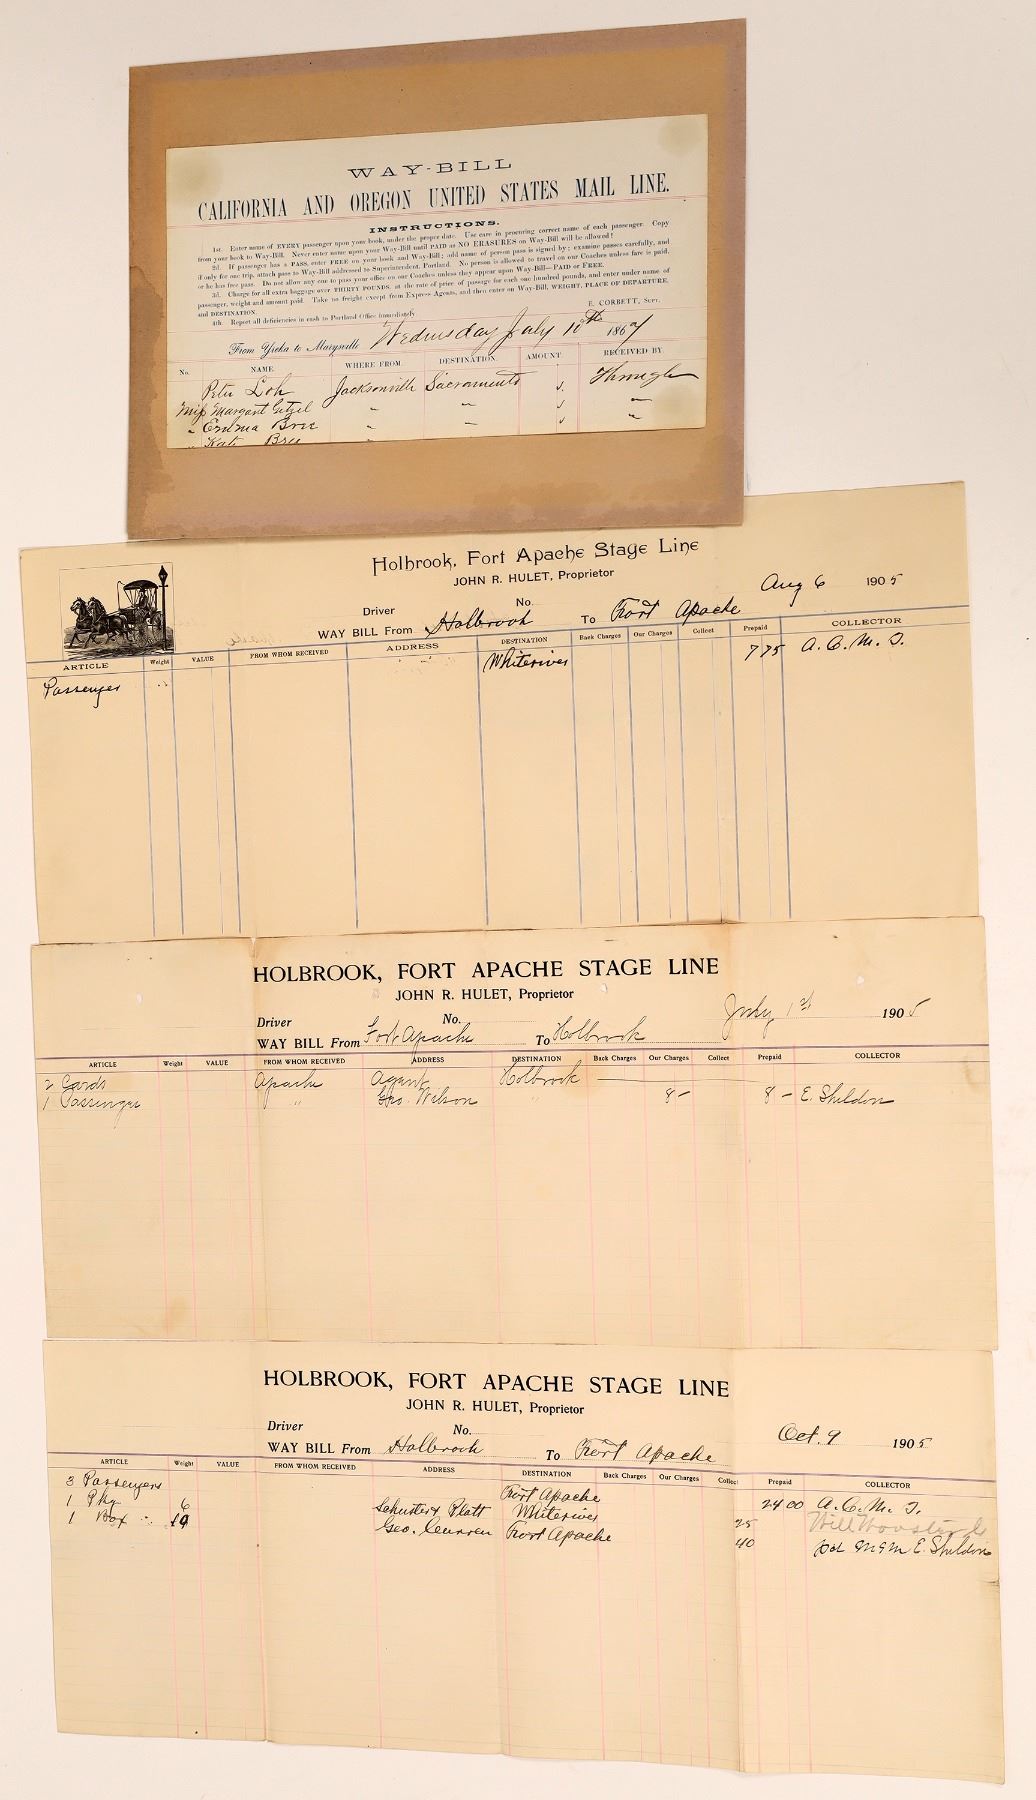 WAY-BILL
CALIFORNIA AND OREGON UNITED STATES MAIL LINE.
INSTRUCTIONS.
1st. Enter name of EVERY passenger upon your book, under the proper date. Use care in procuring correct name of each passenger. Copy
from your book to Way-Bill. Never enter name upon your Way-Bill until PAID as NO ERASURES on Way-Bill will be allowed!
2d. If passenger has a PASS, enter FREE on your book and Way-Bill; add name of person pass is signed by; examine passes carefully, and
if only for one trip, attach pass to Way-Bill addressed to Superintendent, Portland. No person is allowed to travel on our Coaches unless fare is paid,
or he has free pass. Do not allow any one to pass your office on our Coaches unless they appear upon Way-Bill—PAID or FREE.
3d. Charge for all extra baggage over THIRTY POUNDS, at the rate of price of passage for each one hundred pounds, and enter under name of
passenger, weight and amount paid. Take no freight except from Express Agents, and then enter on Way-Bill, WEIGHT, PLACE OF DEPARTURE,
and DESTINATION.
4th. Report all deficiencies in cash to Portland Office immediately.
E. CORBETT, Supt.
From Yreka to Marysville Wednesday July 10th 1867
No. NAME WHERE FROM. DESTINATION. AMOUNT. RECEIVED BY.
Peter Loh Jacksonville Sacramento Through
Miss Margaret " "
" Emma " "
" Kate
Holbrook, Fort Apache Stage Line
JOHN R. HULET, Proprietor
Aug 6 1905
Driver No.
WAY BILL From Holbrook To Fort Apache
ARTICLE Weight VALUE FROM WHOM RECEIVED ADDRESS DESTINATION Back Charges Our Charges Collect Prepaid COLLECTOR
Passenger Whiteriver 7 75 A. C. M. I.
HOLBROOK, FORT APACHE STAGE LINE
JOHN R. HULET, Proprietor
July 1st 1905
Driver No.
WAY BILL From Fort Apache To Holbrook
ARTICLE Weight VALUE FROM WHOM RECEIVED ADDRESS DESTINATION Back Charges Our Charges Collect Prepaid COLLECTOR
2 Cards Apache Agent Holbrook —
1 Passenger " Geo. Wilson " 8 – 8 – E. Sheldon
HOLBROOK, FORT APACHE STAGE LINE
JOHN R. HULET, Proprietor
Driver No.
Oct. 9 1905
WAY BILL From Holbrook To Fort Apache
ARTICLE Weight VALUE FROM WHOM RECEIVED ADDRESS DESTINATION Back Charges Our Charges Collect Prepaid COLLECTOR
3 Passengers Fort Apache 24 00 A. C. M. I.
1 Pkg 6 Schuster & Platt Whiteriver 25 Will
1 Box 19 Geo. Curren Fort Apache 40 pd E. Sheldon